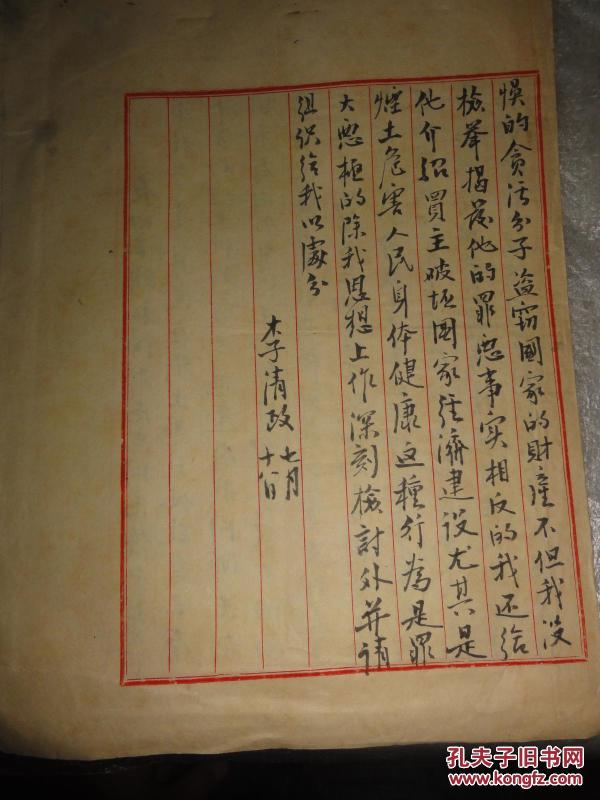 惧的貪污分子盗窃國家的財産不但我没
檢举揭發他的罪惡事实相反的我还给
他介紹買主破坏国家経濟建设尤其是
烟土危害人民身体健康这種行為是罪
大惡極的除我思想上作深刻檢討外并请
组织给我以處分
李清政 七月
十八日
孔夫子旧书网
www.kongfz.com